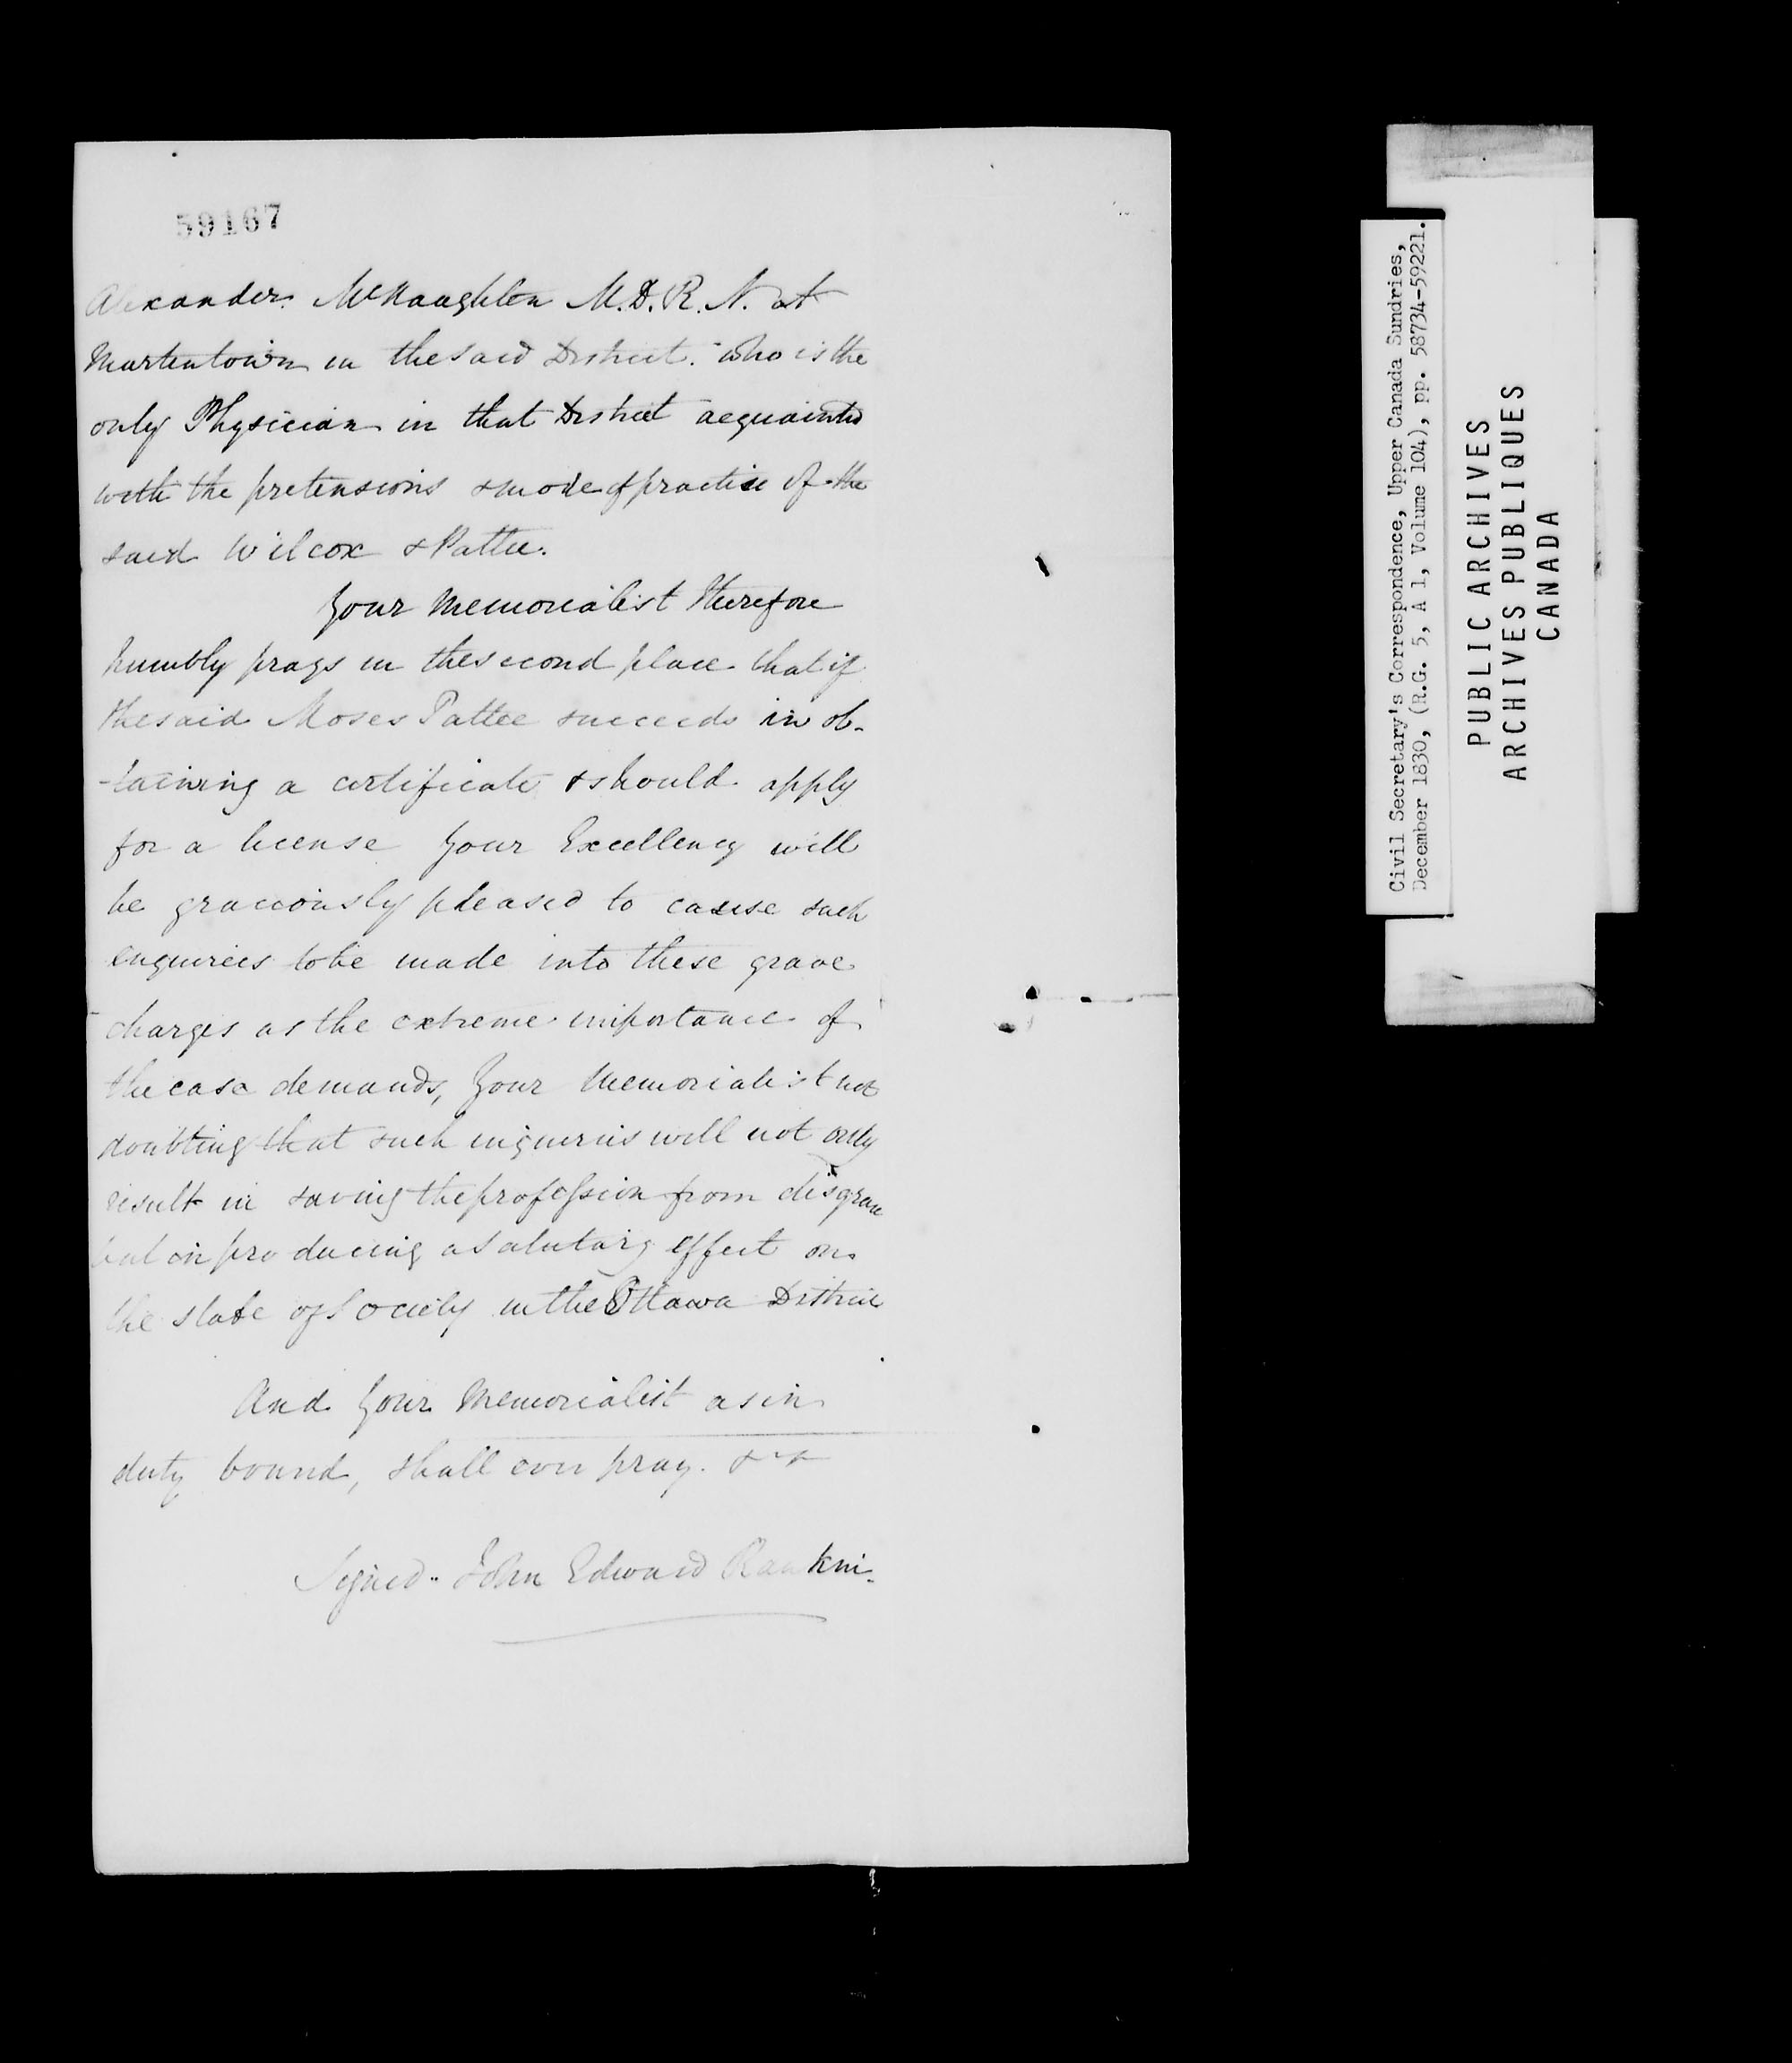 59167
Alexander McNaughten M.D.R.N. at
Martintown in the said District. who is the
only Physician in that District acquainted
with the pretensions & mode of practise of the
said Wilcox & Pattee.
Your Memorialist therefore
humbly prays in the second place that if
the said Moses Pattee succeeds in ob-
-taining a certificate & should apply
for a license Your Excellency will
be graciously pleased to cause such
enquiries to be made into these grave
charges as the extreme importance of
the case demands, Your Memorialist not
doubting that such inquiries will not only
result in saving the profession from disgrace
but in producing a salutary effect on
the state of society in the Ottawa District
And Your Memorialist as in
duty bound, shall ever pray. &c &
Signed.. John Edward Rankin.
Civil Secretary's Correspondence, Upper Canada Sundries,
December 1830, (R.G. 5, A 1, Volume 104), pp. 58734-59221.
PUBLIC ARCHIVES
ARCHIVES PUBLIQUES
CANADA